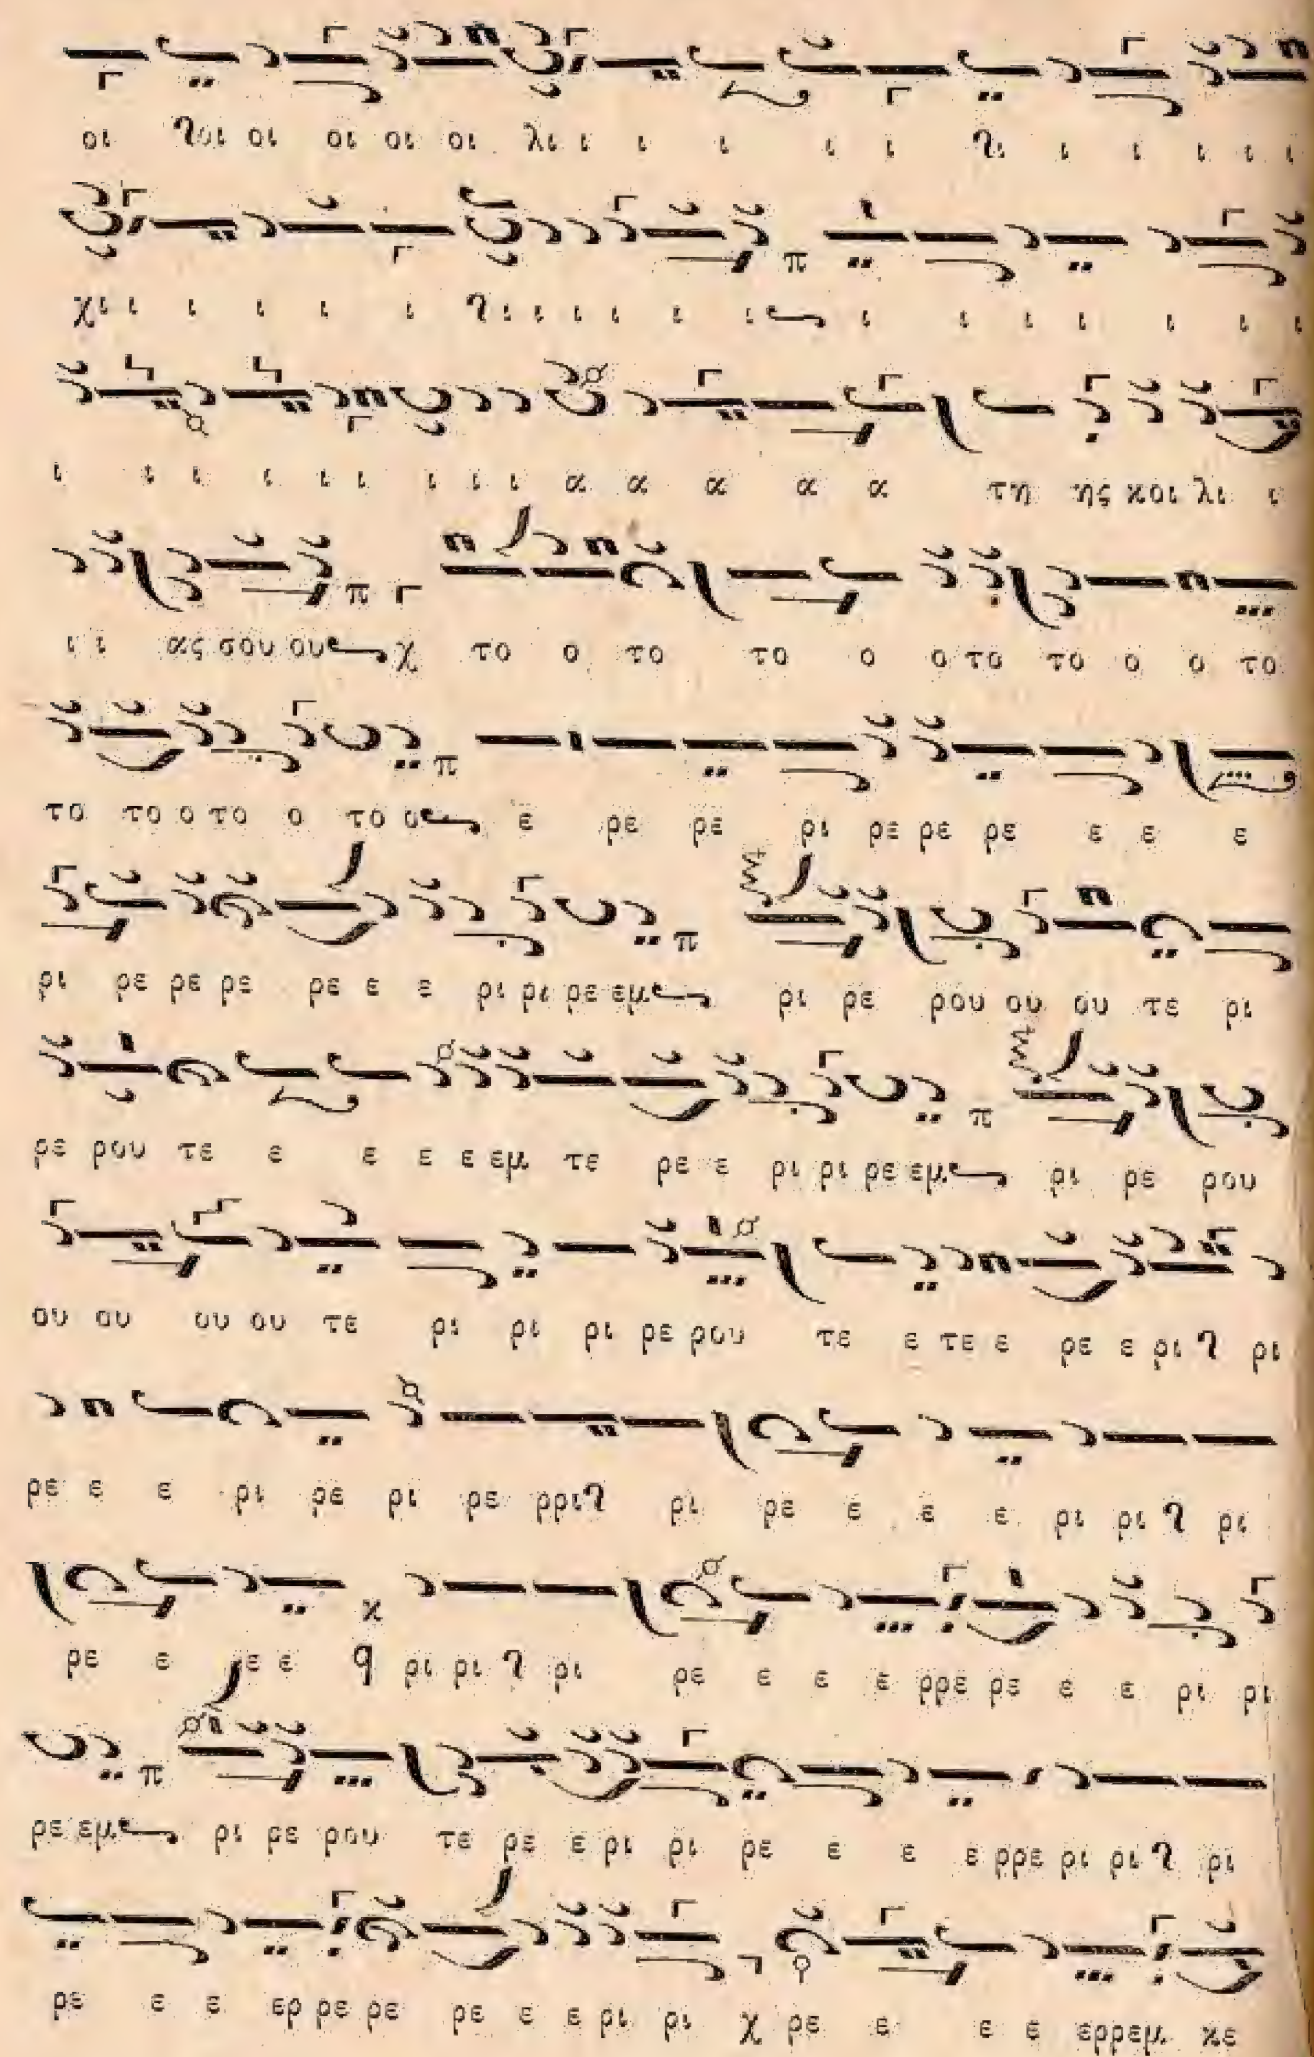 οι χοι οι οι οι οι λι ι ι ι ι ι χι ι ι ι ι ι
χι ι ι ι ι ι ι χι ι ι ι ι ι ι ι ι ι ι ι ι ι
ι ι ι ι ι ι ι ι ι α α α α α τη ης κοι λι ι
π
ι ι ας σου ου χ το ο το το ο ο το το ο ο το
π
το το ο το ο το ο ε ρε ρε ρι ρε ρε ρε ε ε ε
π
ρι ρε ρε ρε ρε ε ε ρι ρι ρε εμ ρι ρε ρου ου ου τε ρι
π
ρε ρου τε ε ε ε ε εμ τε ρε ε ρι ρι ρε εμ ρι ρε ρου
π
ου ου ου ου τε ρι ρι ρι ρε ρου τε ε τε ε ρε ε ρι ρι
ρε ε ε ρι ρε ρι ρε ρρι ρι ρε ε ε ε ρι ρι ρι
κ
ρε ε ε ε q ρι ρι ρι ρε ε ε ε ρρε ρε ε ε ρι ρι
π
ρε εμ ρι ρε ρου τε ρε ε ρι ρι ρε ε ε ε ρρε ρι ρι ρι
ρε ε ε ερ ρε ρε ρε ε ε ρι ρι χ ρε ε ε ε ερρεμ κε